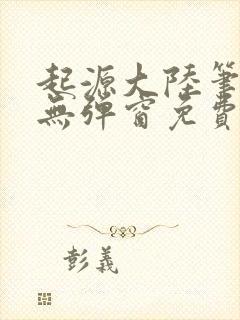 起源大陸筆
無彈窗免費
彭義